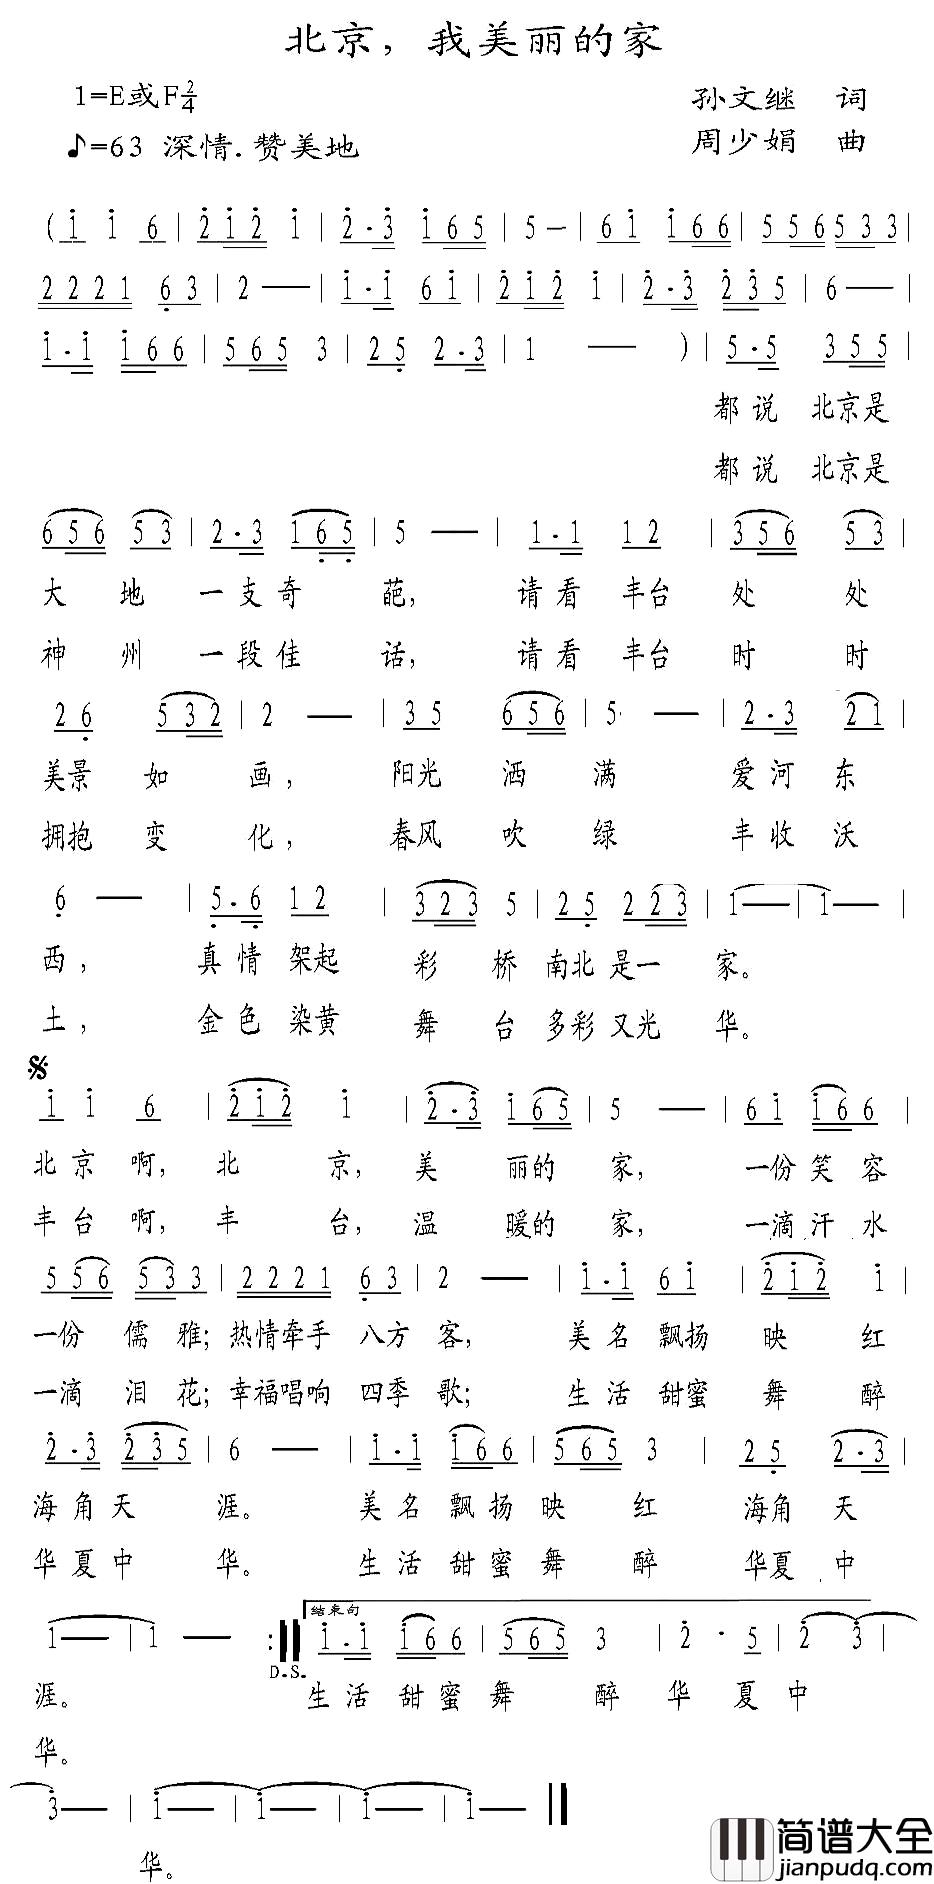 北京，我美丽的家
1=E或F2/4 孙文继 词
♪=63 深情.赞美地 周少娟 曲
(1̇ 1̇ 6 | 2̇1̇2̇ 1̇ | 2̇·3̇ 1̇65 | 5 — | 61̇ 1̇66 | 556533 |
2221 6̣3 | 2 — | 1̇·1̇ 61̇ | 2̇1̇2̇ 1̇ | 2̇·3̇ 2̇3̇5 | 6 — |
1̇·1̇ 1̇66 | 565 3 | 25̣ 2·3 | 1 — ) | 5·5 355 |
都说 北京是
都说 北京是
656 53 | 2·3 16̣5̣ | 5 — | 1·1 12 | 356 53 |
大地一支奇葩，请看丰台处处
神州一段佳话，请看丰台时时
26̣ 532 | 2 — | 35 656 | 5 — | 2·3 21 |
美景如画，阳光洒满爱河东
拥抱变化，春风吹绿丰收沃
6̣ — | 5̣·6̣ 12 | 323 5 | 25̣ 223 | 1 — | 1 — |
西，真情架起彩桥南北是一家。
土，金色染黄舞台多彩又光华。
𝄋
1̇ 1̇ 6 | 2̇1̇2̇ 1̇ | 2̇·3̇ 1̇65 | 5 — | 61̇ 1̇66 |
北京啊，北京，美丽的家，一份笑容
丰台啊，丰台，温暖的家，一滴汗水
556 533 | 2221 6̣3 | 2 — | 1̇·1̇ 61̇ | 2̇1̇2̇ 1̇ |
一份儒雅；热情牵手八方客，美名飘扬映红
一滴泪花；幸福唱响四季歌；生活甜蜜舞醉
2̇·3̇ 2̇3̇5 | 6 — | 1̇·1̇ 1̇66 | 565 3 | 25̣ 2·3 |
海角天涯。美名飘扬映红海角天
华夏中华。生活甜蜜舞醉华夏中
结束句
1 — | 1 — :‖ 1̇·1̇ 1̇66 | 565 3 | 2̇· 5 | 2̇ 3̇ |
D.S.
涯。 生活甜蜜舞醉华夏中
华。
3̇ — | 1̇ — | 1̇ — | 1̇ — | 1̇ — ‖
华。
简谱大全
jianpudq.com